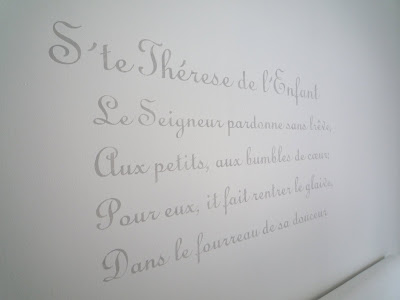 S'te Thérese de l'Enfant
Le Seigneur pardonne sans trève,
Aux petits, aux bumbles de cœur
Pour eux, it fait rentrer le glaive,
Dans le fourreau de sa douceur